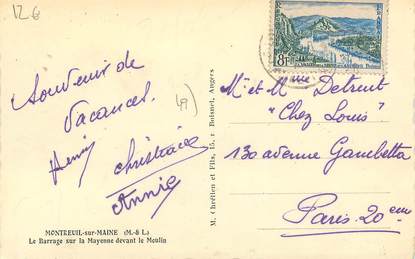 12€
8F
Souvenir de
Vacances.
Henri
Christiane
Annie
49)
MONTREUIL-sur-MAINE (M.-&L.)
Le Barrage sur la Mayenne devant le Moulin
M. Chrétien et Fils, 15, r Boisnet, Angers
Mr et Mme Detreut
"Chez Louis"
130 avenue Gambetta
Paris 20eme